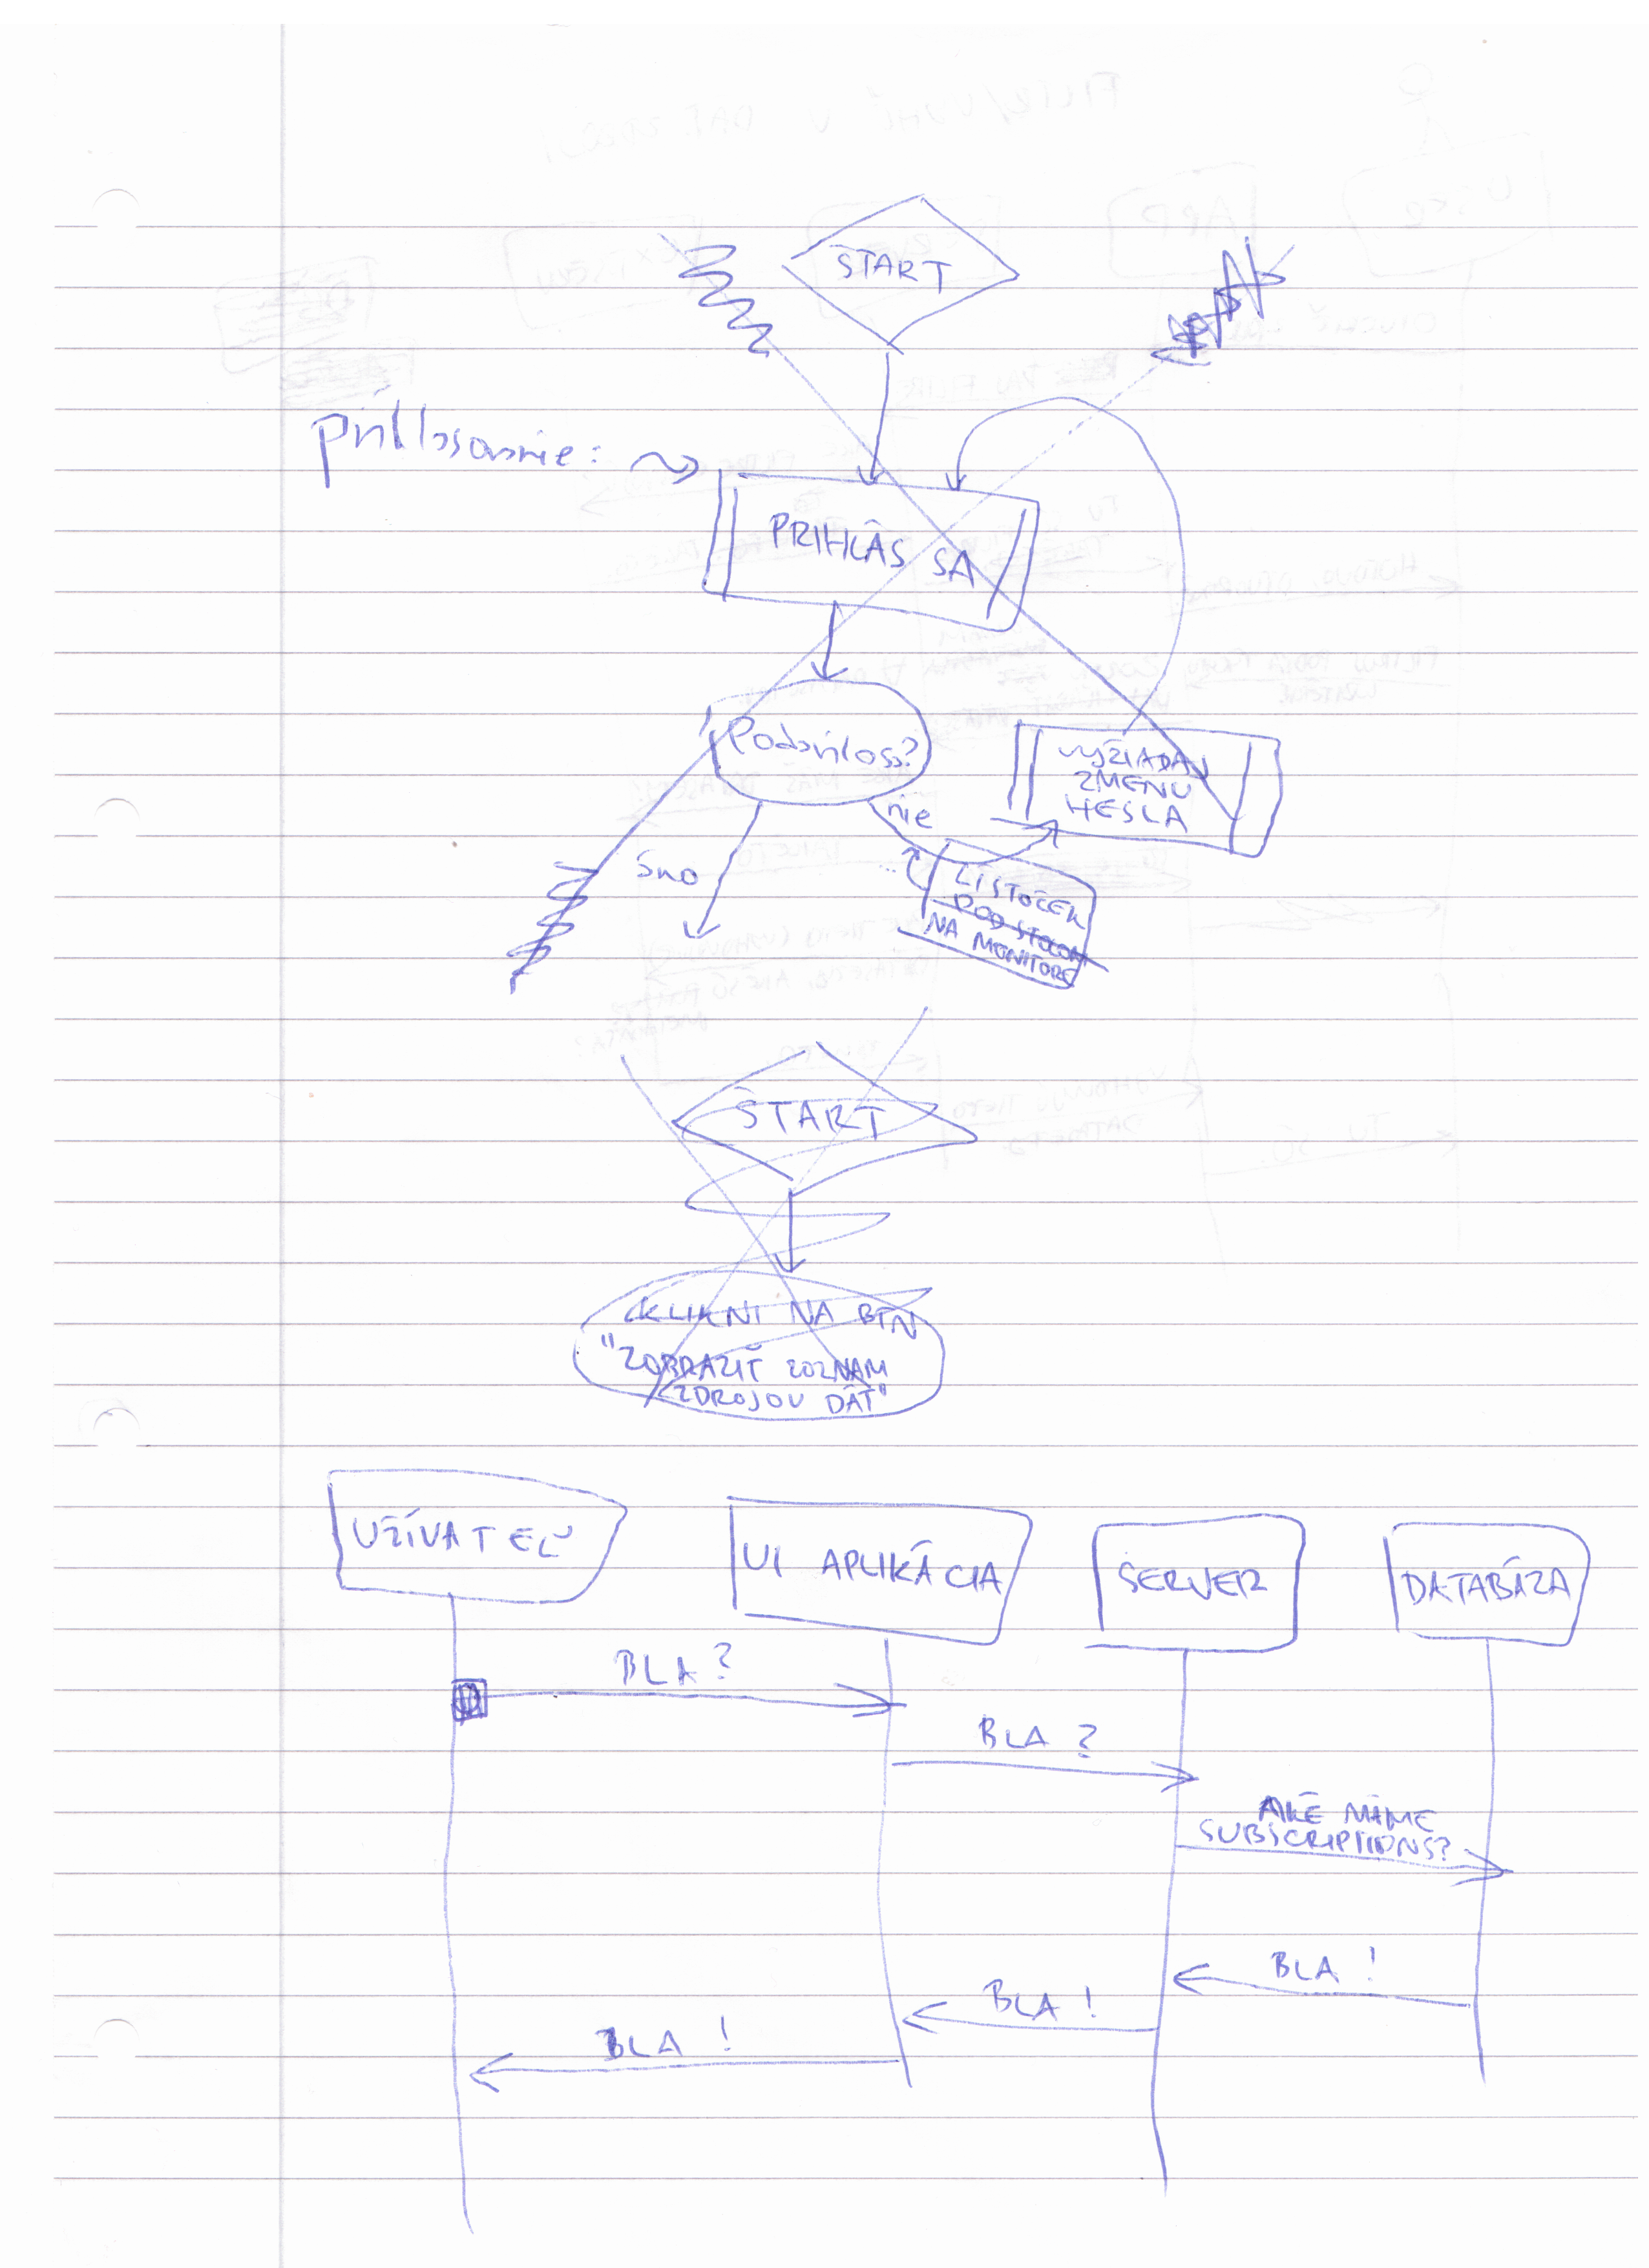 START
prihlasovanie:
PRIHLÁS SA
Podarilosa?
VYŽIADAJ
ZMENU
HESLA
nie
áno
LÍSTOČEK
POD STOLOM
NA MONITORE
START
KLIKNI NA BTN
"ZOBRAZIŤ ZOZNAM
ZDROJOV DÁT"
UŽÍVATEĽ
UI APLIKÁCIA
SERVER
DATABÁZA
BLA?
BLA ?
AKÉ MÁME
SUBSCRIPTIONS?
BLA !
BLA !
BLA !